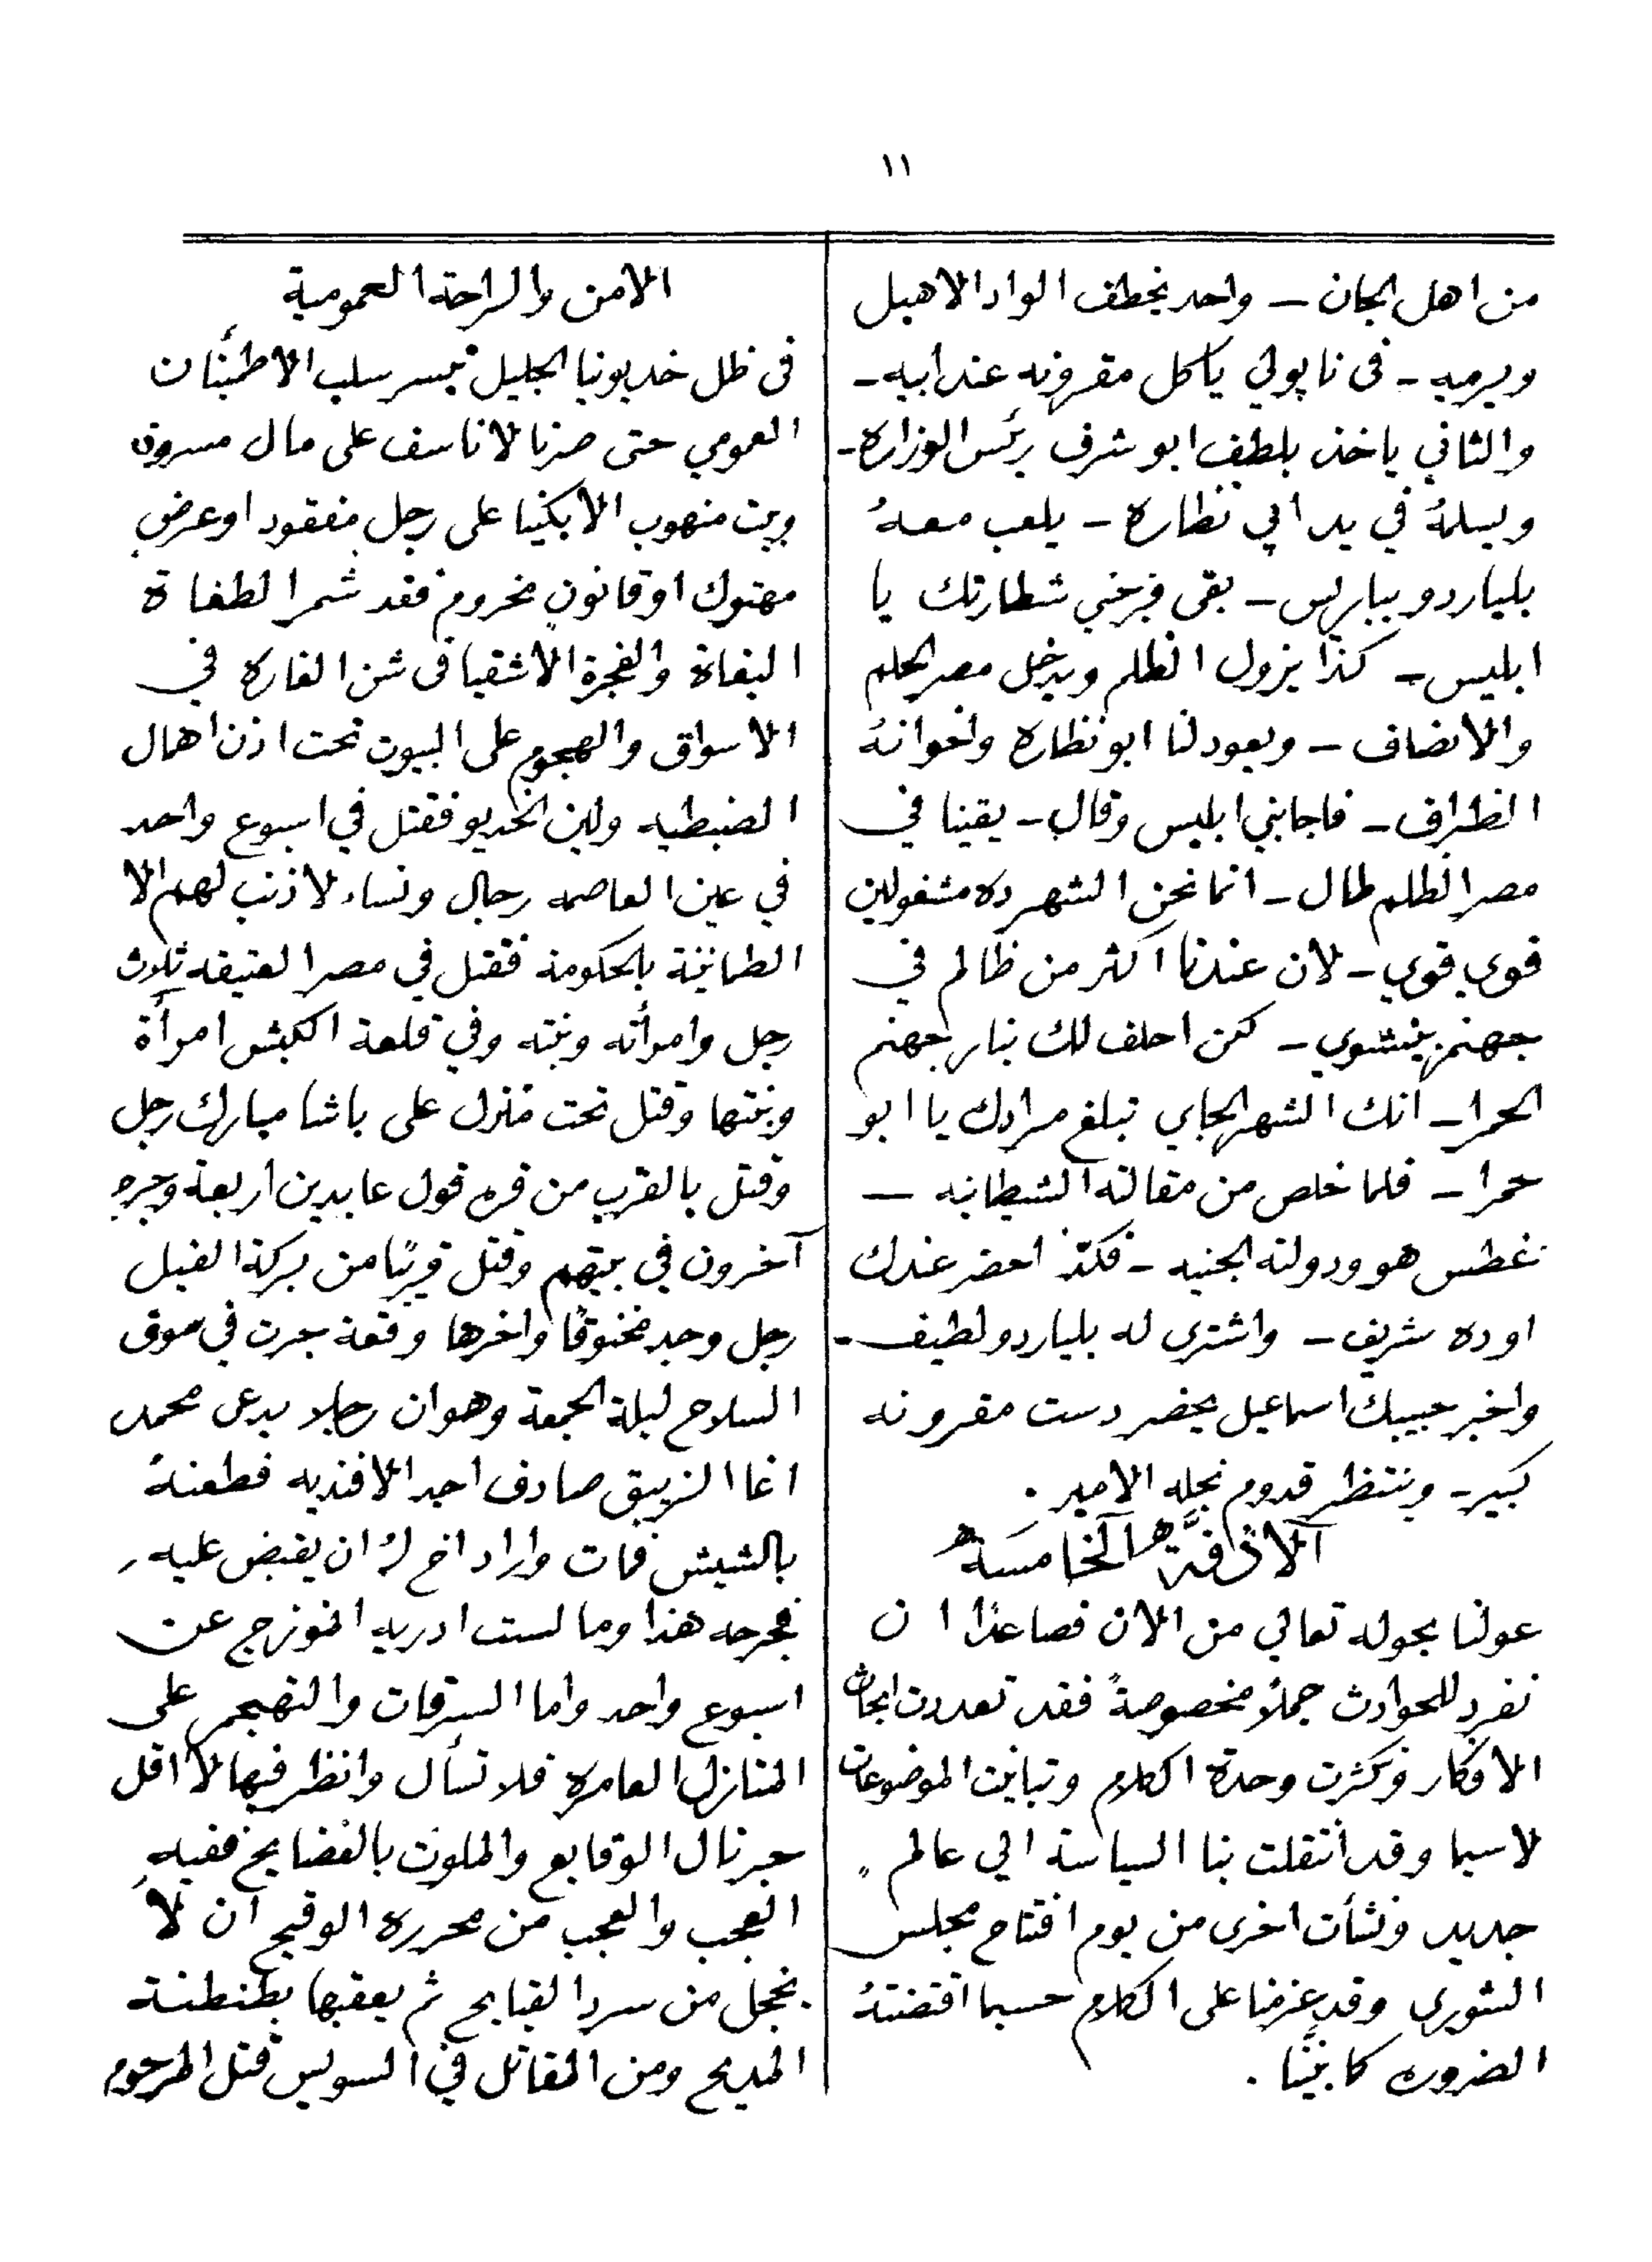 ١١
من اهل الجان – واحد يخطف الواد الاهبل
ويرميه – فى نابولي ياكل مقرونه عند ابيه –
والثاني ياخذ بلطف ابو شرف رئس الوزاره –
ويسلمهُ في يد ابي نظاره – يلعب معهُ
بلياردو بباريس – بقى فرجني شطارتك يا
ابليس – كذا يزول الظلم ويدخل مصر الحلم
والانصاف – ويعود لنا ابو نظاره واخوانهُ
الظراف – فاجابني ابليس وقال – يقينا في
مصر الظلم طال – انما نحن الشهر ده مشغولين
قوي قوي – لان عندنا اكثر من ظالم في
جهنم ينشوي – لكن احلف لك بنار جهنم
الحمرا – انك الشهر الجاي تبلغ مرادك يا ابو
حمرا – فلما خلص من مقالته الشيطانيه –
غطس هو ودولته الجنيه – فكذا احضر عندك
اوده شريف – واشترى له بلياردو لطيف –
واخبر حبيبك اسماعيل يحضر دست مقرونه
كبير – وينتظر قدوم نجله الامير .
الخامسة
عولنا بحوله تعالي من الان فصاعدًا ان
نفرد للحوادث جملاً مخصوصةً فقد تعددت ابحاث
الافكار وكثرت وحدة الكلام وتباينت الموضوعات
لاسيما وقد انتقلت بنا السياسة الي عالم
جديد ونشأت اخرى من يوم افتتاح مجلس
الشورى وقد عزمنا على الكلام حسبما اقتضتهُ
الضروره كما بيَّنَّا .
الامن والراحة العمومية
فى ظل خديوينا الجليل تيسر سلب الاطمئنان
العمومي حتى صرنا لا نأسف على مال مسروق
وبيت منهوب الا بكينا على رجل مفقود او عرض
مهتوك او قانون مخروم فقد شمر الطغاة
البغاة والفجرة الاشقيا فى شن الغاره في
الاسواق والهجوم على البيوت تحت اذن اهمال
الضبطيه ولين الخديو فقتل في اسبوع واحد
في عين العاصمه رجال ونساء لا ذنب لهم الا
الطمانينة بالحكومة فقتل في مصر العتيقه ثلاث
رجل وامرأته وبنته وفي قلعة الكبش امرأة
وبنتها وقتل تحت منزل على باشا مبارك رجل
وقتل بالقرب من قره قول عابدين اربعة وجرح
آخرون في بيتهم وقتل قريبًا من بركة الفيل
رجل وجد مخنوقًا واخرها وقعة جرت في سوق
السلاح ليلة الجمعة وهو ان رجلا يدعى محمد
اغا الزيبق صادف احد الافنديه فطعنهُ
بالشيش فمات واراد اخ لهُ ان يقبض عليه
فجرحه هذا وما لست ادريه انموزج عن
اسبوع واحد واما السرقات والتهجم على
المنازل العامره فلا تسأل وانظر فيها لا اقل
جرنال الوقايع والملوث بالفضايح ففيهِ
العجب والعجب من محرره الوقيح ان لا
يخجل من سرد القبايح ثم يعقبها بطنطنة
المديح ومن المقاتل في السويس قتل المرحوم